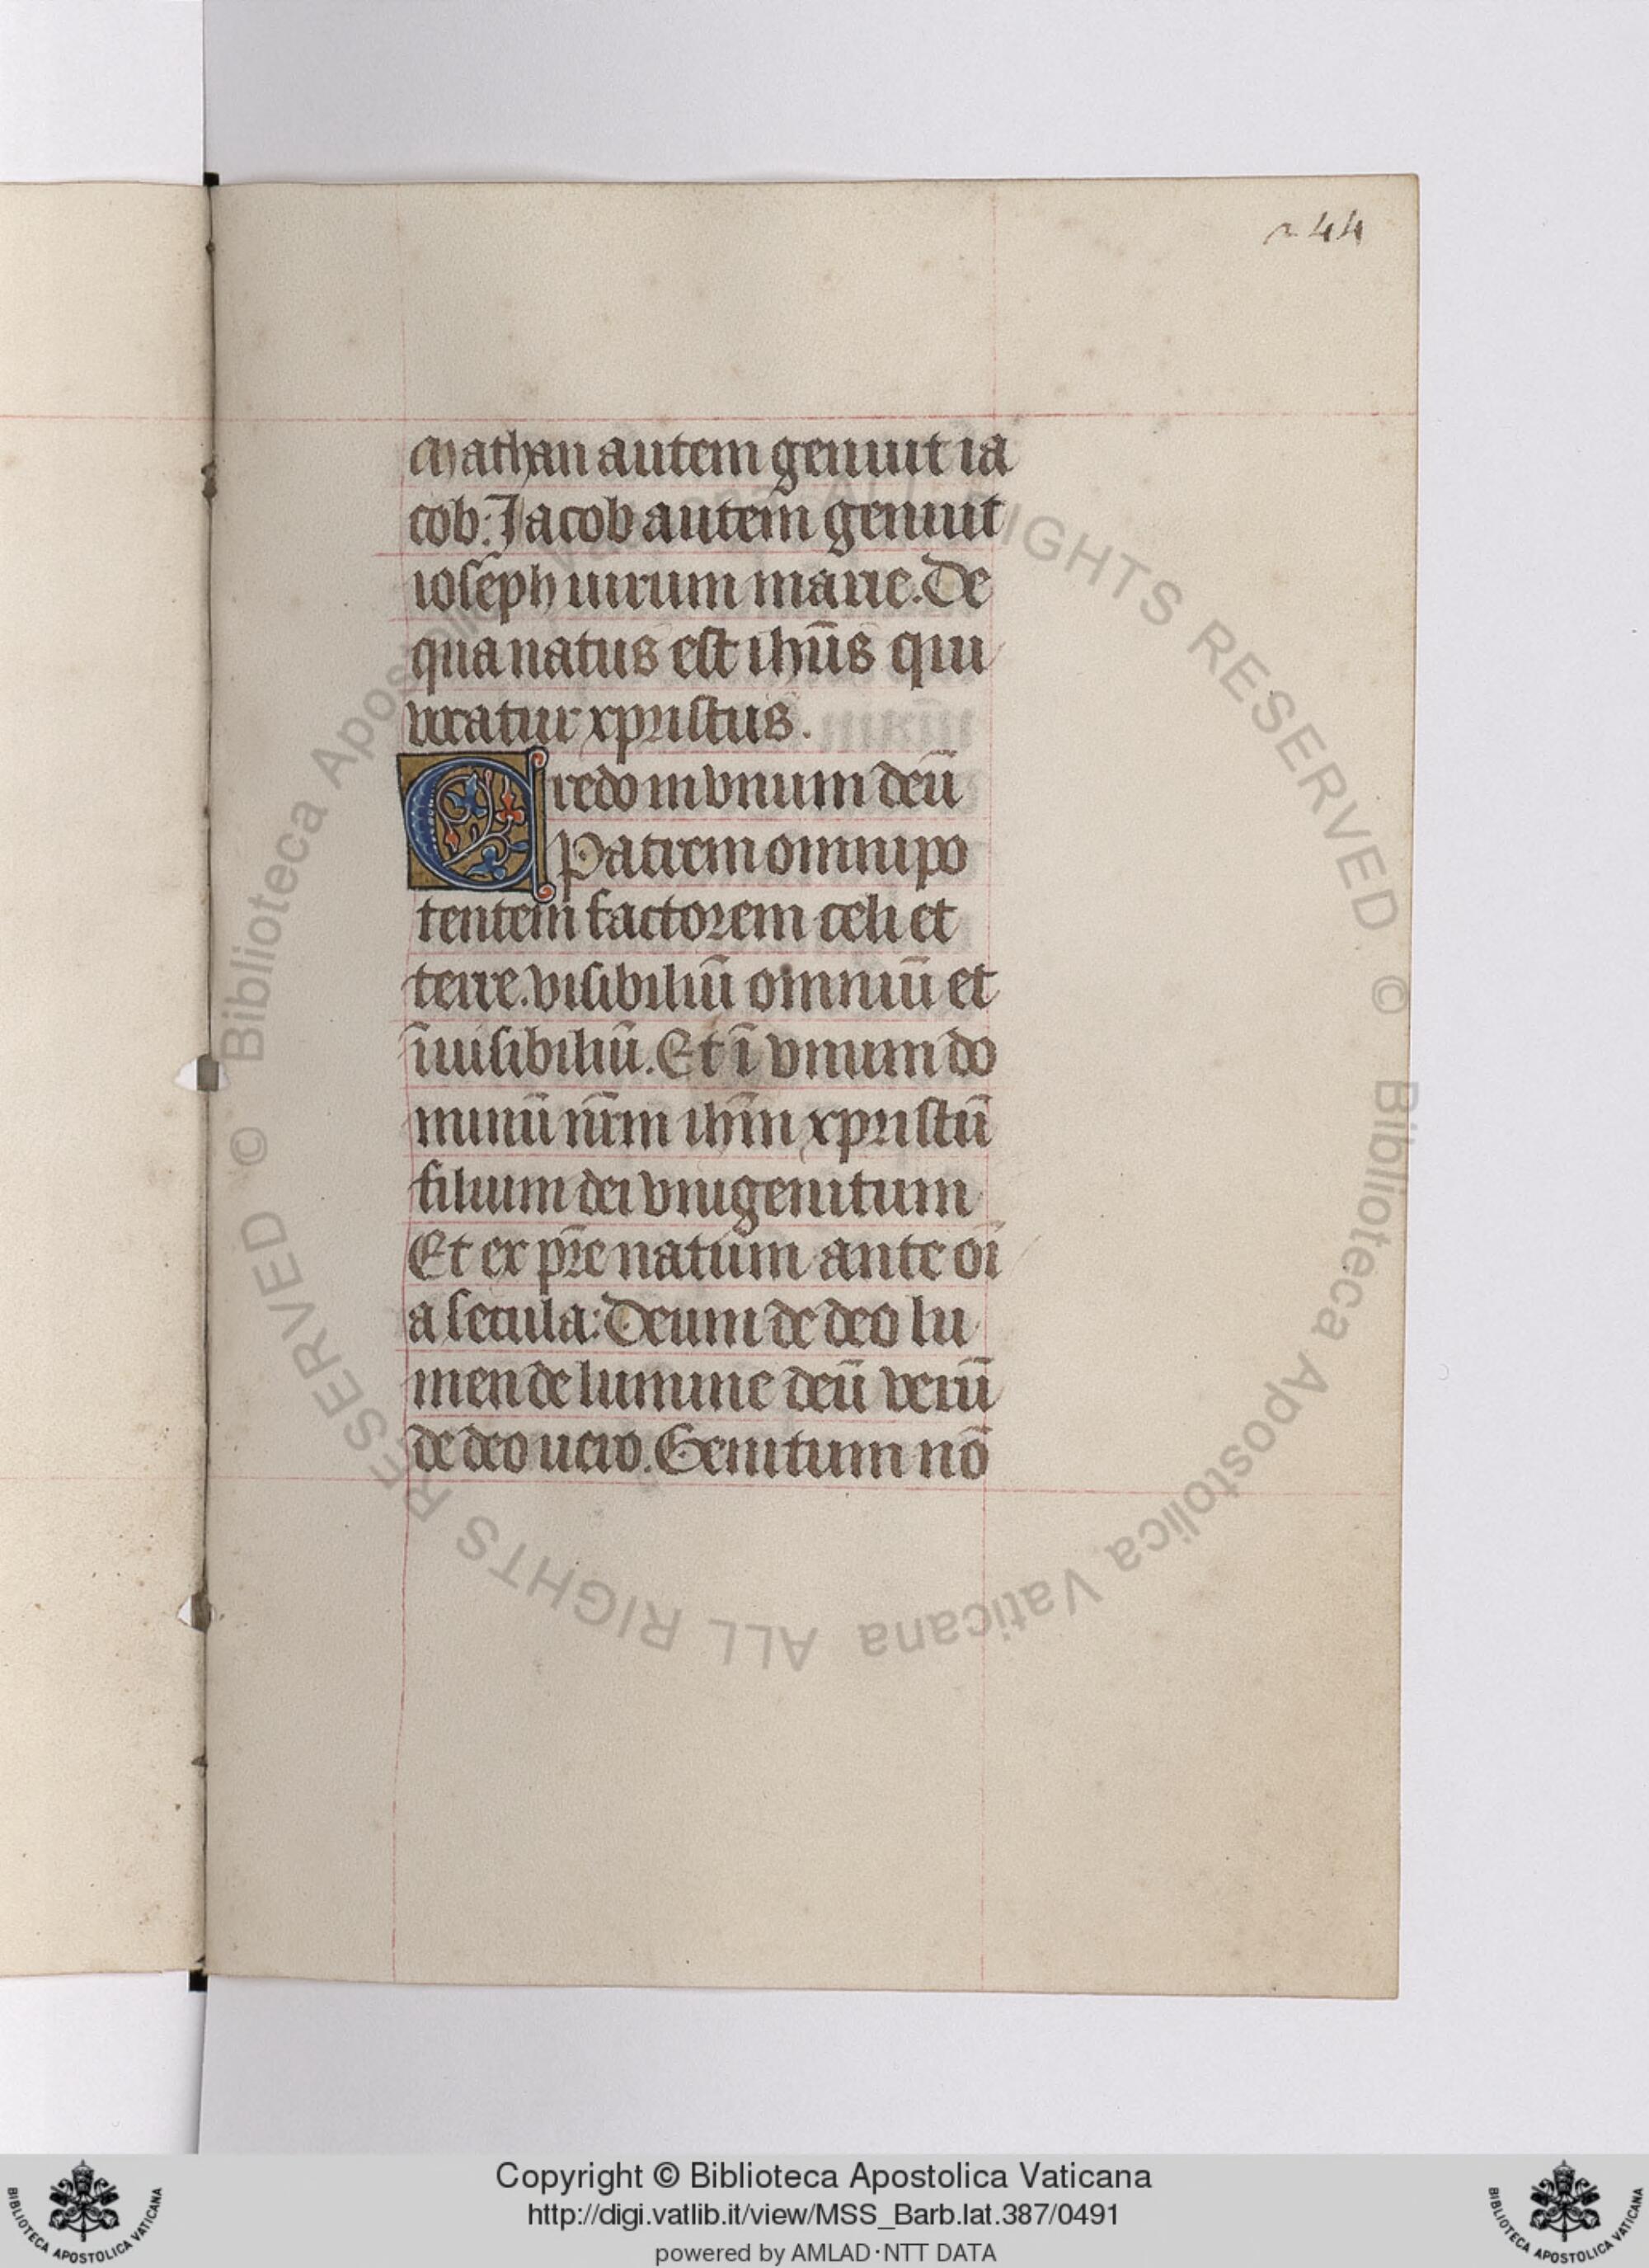 244
Mathan autem genuit ia
cob: Jacob autem genuit
ioseph uirum marie. De
qua natus est ihūs qui
vocatur xpristus.
Credo in vnum deū
Patrem omnipo
tentem factorem celi et
terre. visibiliū omniū et
īuisibiliū. Et ī vnum do
minū nr̄m ihm̄ xpristū
filium dei vnigenitum
Et ex pr̄e natum ante oī
a secula: Deum de deo lu
men de lumine deū verū
de deo uero. Genitum nō
© Biblioteca Apostolica Vaticana ALL RIGHTS RESERVED © Biblioteca Apostolica Vaticana ALL RIGHTS RESERVED
Copyright © Biblioteca Apostolica Vaticana
http://digi.vatlib.it/view/MSS_Barb.lat.387/0491
powered by AMLAD·NTT DATA
BIBLIOTECA APOSTOLICA VATICANA
BIBLIOTECA APOSTOLICA VATICANA